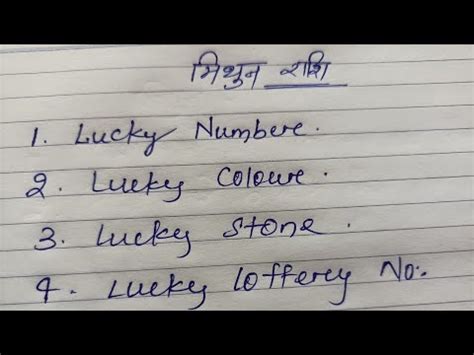 मिथुन राशि
1. Lucky Numbere.
2. Lucky Coloure.
3. Lucky Stone.
4. Lucky Lofferey No:.